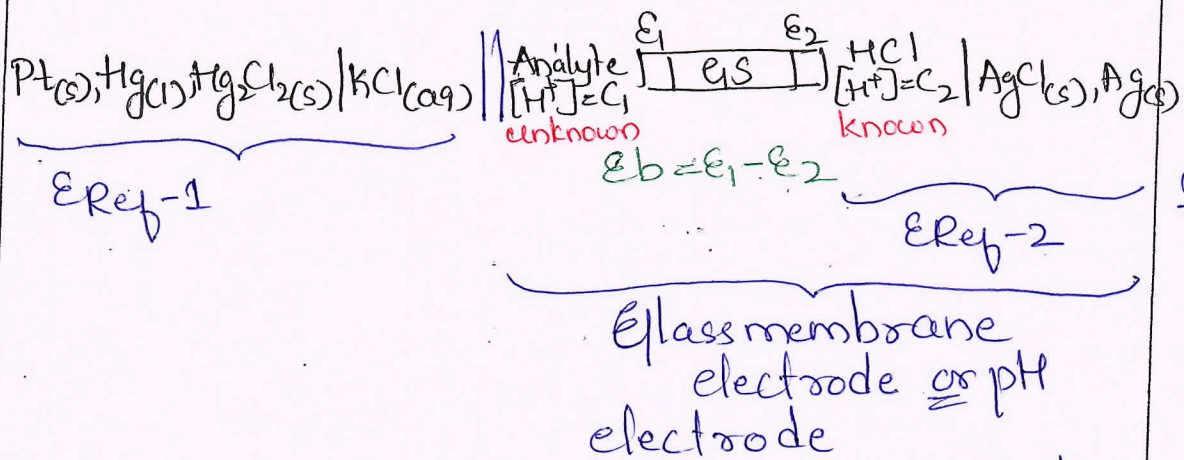 Ɛ1 Ɛ2
Pt(s), Hg(l), Hg2Cl2(s) | KCl(aq) || Analyte GS HCl
[H+]=C1 [H+]=C2 | AgCl(s), Ag(s)
unknown known
Ɛb = Ɛ1 - Ɛ2
ƐRef-1
ƐRef-2
Ɛglass membrane
electrode or pH
electrode